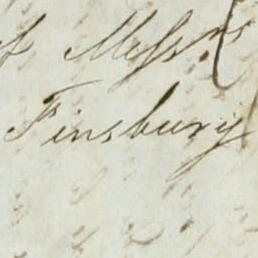 of Messrs
Finsbury